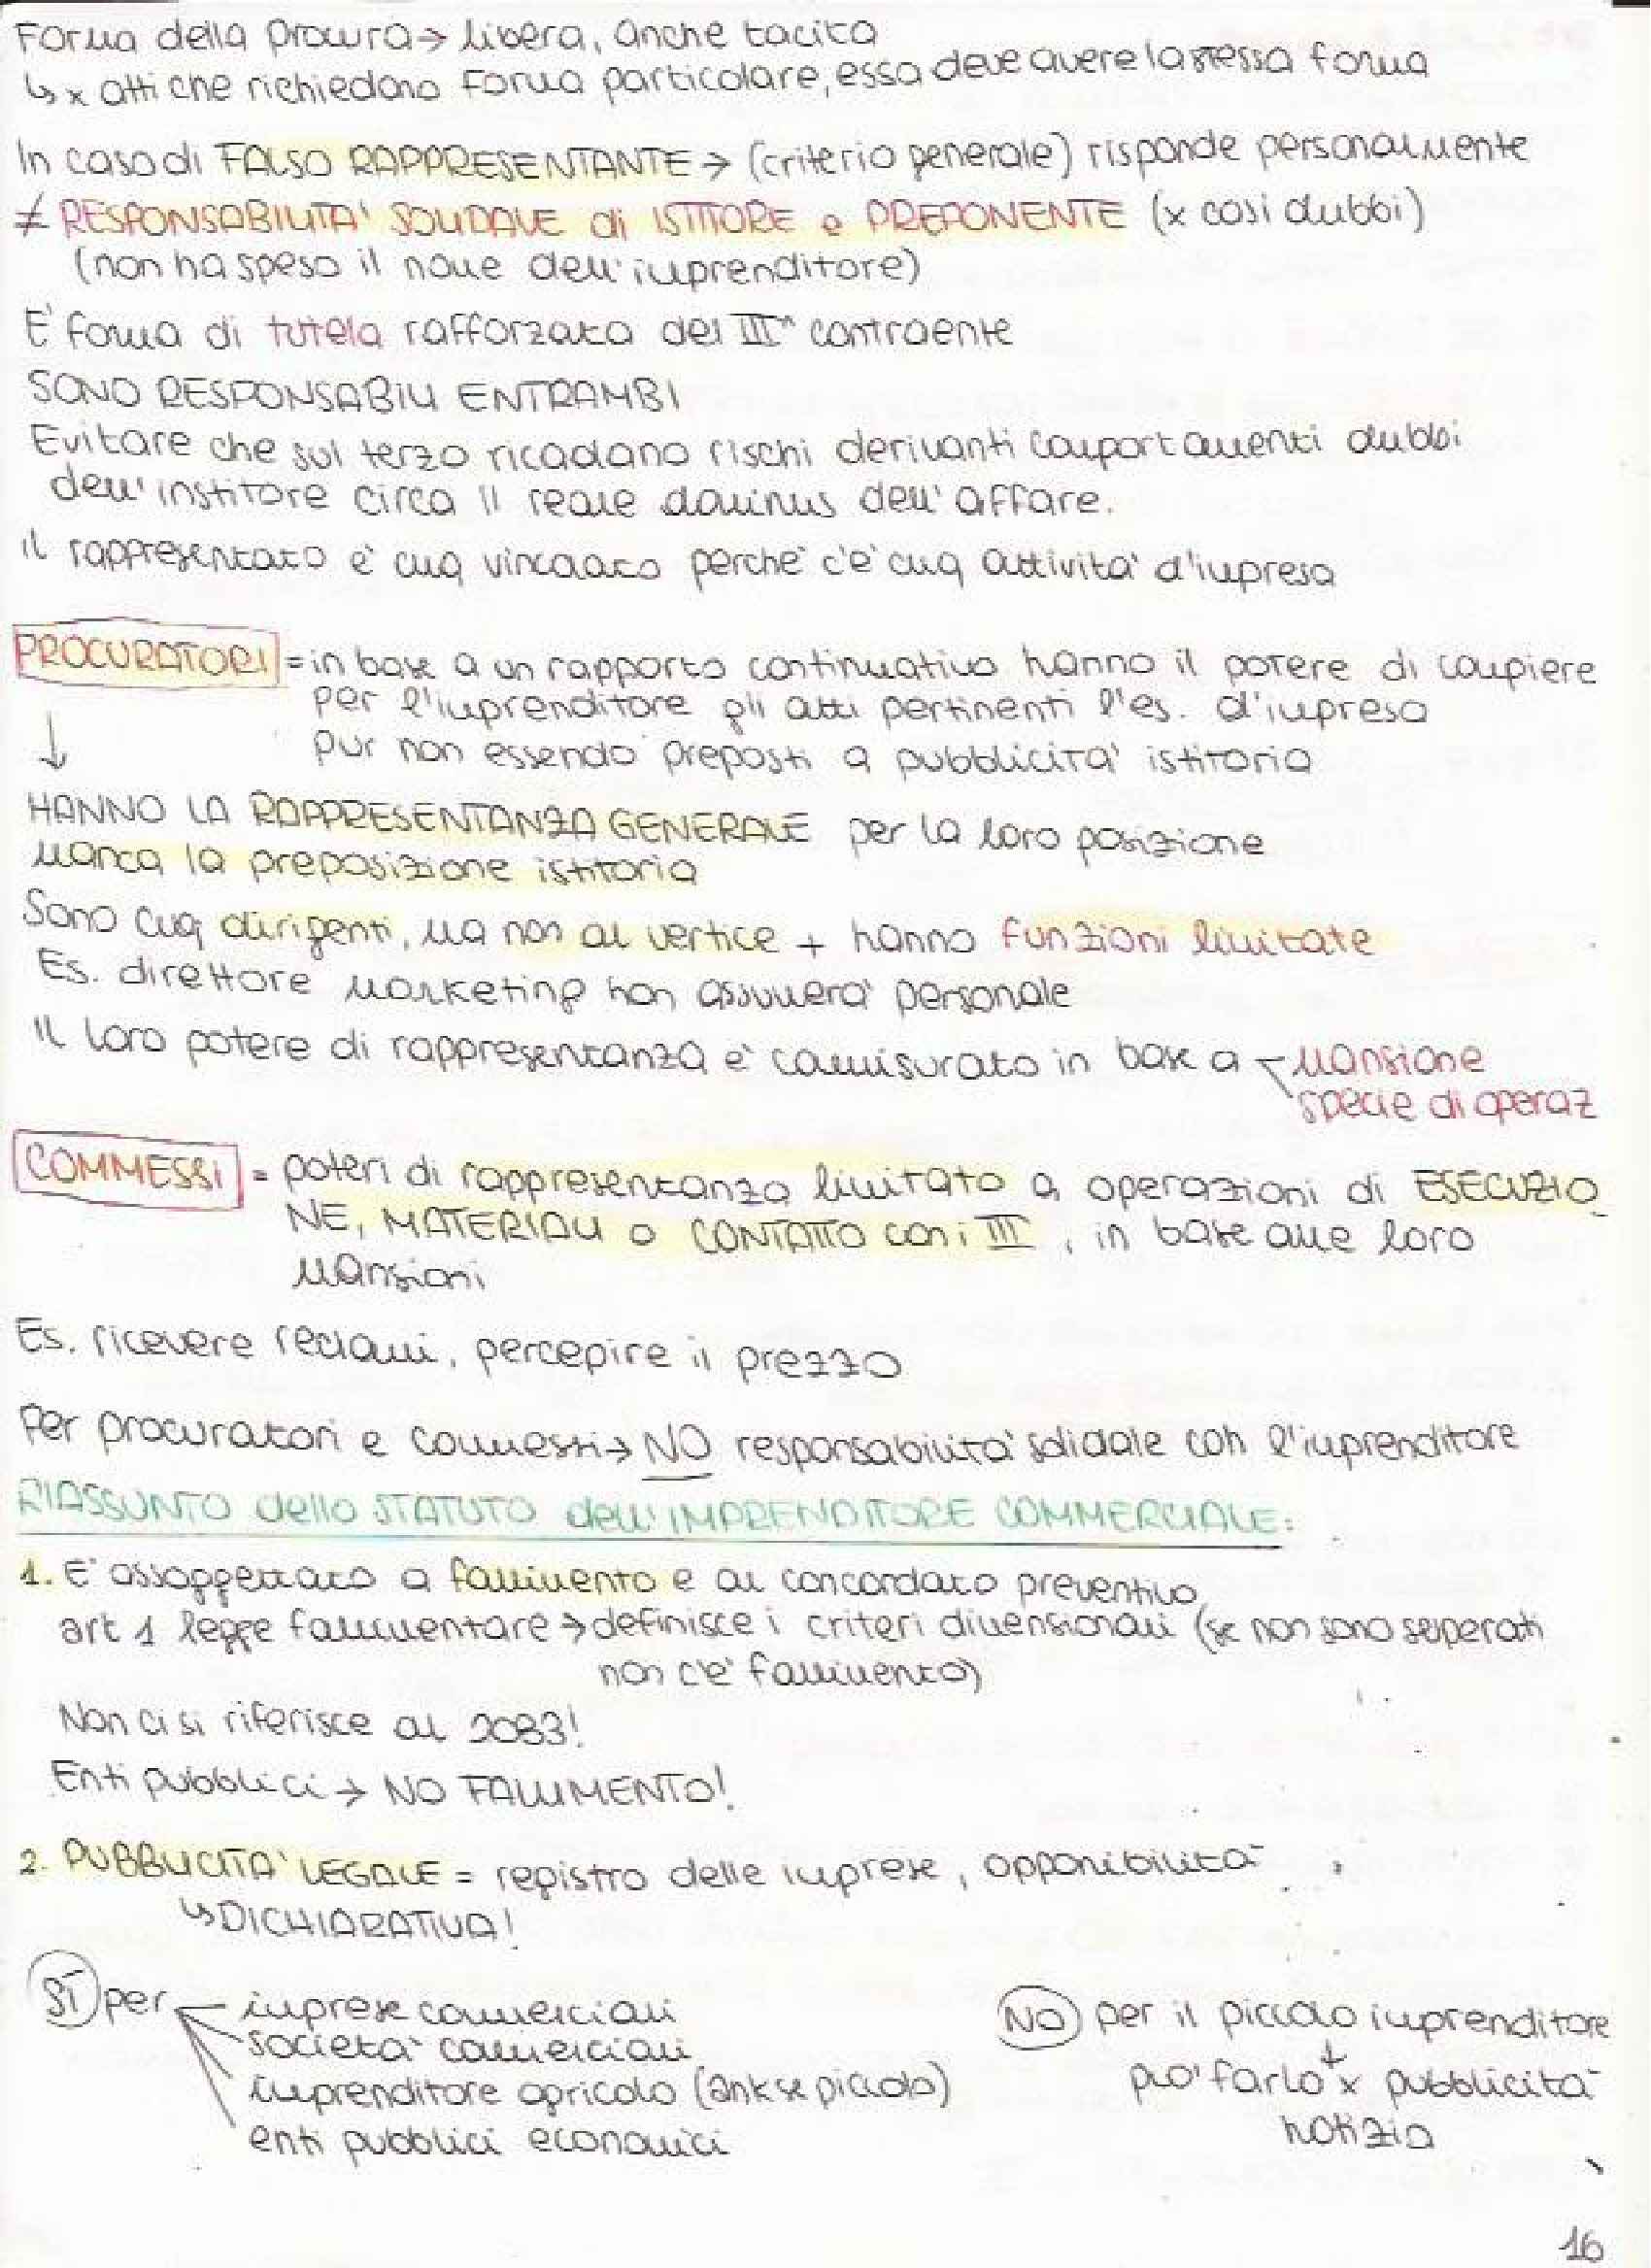 Forma della procura → libera, anche tacita
↳ x atti che richiedono forma particolare, essa deve avere la stessa forma
In caso di FALSO RAPPRESENTANTE → (criterio generale) risponde personalmente
≠ RESPONSABILITA' SOLIDALE di ISTITORE e PREPONENTE (x casi dubbi)
(non ha speso il nome dell'imprenditore)
E' forma di tutela rafforzata del III° contraente
SONO RESPONSABILI ENTRAMBI
Evitare che sul terzo ricadano rischi derivanti comportamenti dubbi
dell'institore circa il reale dominus dell'affare.
Il rappresentato è cmq vincolato perchè c'è cmq attività d'impresa
PROCURATORI = in base a un rapporto continuativo hanno il potere di compiere
per l'imprenditore gli atti pertinenti l'es. d'impresa
↓ pur non essendo preposti a pubblicità istitoria
HANNO LA RAPPRESENTANZA GENERALE per la loro posizione
Manca la preposizione istitoria
Sono cmq dirigenti, ma non al vertice + hanno funzioni limitate
Es. direttore marketing non assumerà personale
Il loro potere di rappresentanza è commisurato in base a mansione
specie di operaz
COMMESSI = poteri di rappresentanza limitato a operazioni di ESECUZIO
NE, MATERIALI o CONTATTO con i III, in base alle loro
mansioni
Es. ricevere reclami, percepire il prezzo
Per procuratori e commessi → NO responsabilità solidale con l'imprenditore
RIASSUNTO dello STATUTO dell'IMPRENDITORE COMMERCIALE:
1. E' assoggettato a fallimento e al concordato preventivo
art 1 legge fallimentare → definisce i criteri dimensionali (se non sono superati
non c'è fallimento)
Non ci si riferisce al 2083!
Enti pubblici → NO FALLIMENTO!
2. PUBBLICITA' LEGALE = registro delle imprese, opponibilità
↳ DICHIARATIVA!
SI per imprese commerciali
società commerciali
imprenditore agricolo (ank se piccolo)
enti pubblici economici
NO per il piccolo imprenditore
↓
può farlo x pubblicità
notizia
16